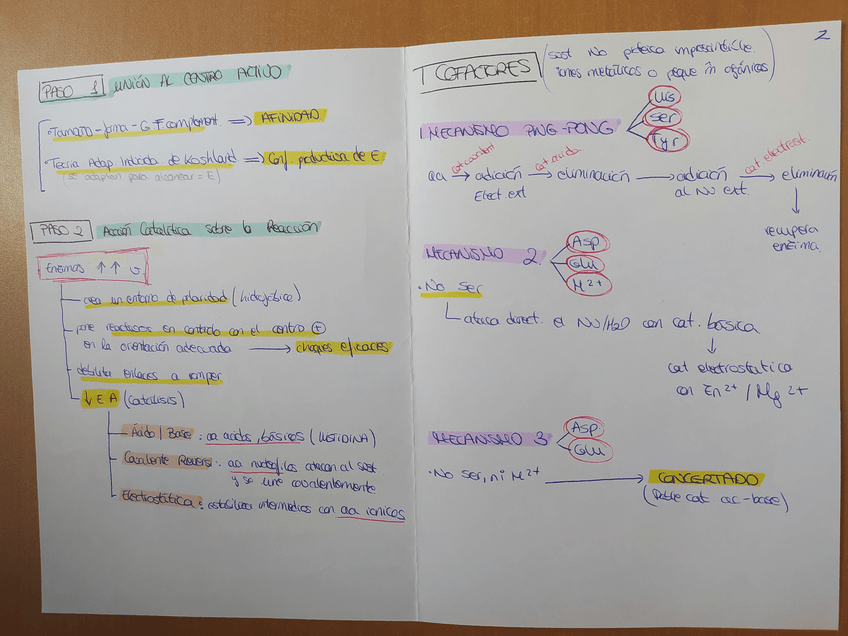 PASO 1 UNIÓN AL CENTRO ACTIVO
Tamaño-forma-G.F complement. => AFINIDAD
Teoría Adap. Inducida de Koshland => Conf productiva de E
(se adaptan para alcanzar = E)
PASO 2 Acción Catalítica sobre la Reacción
Enzimas ↑↑ v
crea un entorno de polaridad (hidrofóbico)
pone reactivos en contacto con el centro +
en la orientación adecuada → choques eficaces
debilita enlaces a romper
↓ E A (catálisis)
Ácido/Base: aa ácidos, básicos (HISTIDINA)
Covalente Revers: aa nucleófilos atacan al sust
y se une covalentemente
Electrostática: estabiliza intermedios con aa iónicos
2
COFACTORES
(sust No proteica imprescindible
iones metálicos o peque m orgánicos)
1 MECANISMO PING-PONG
His
Ser
Tyr
cat covalent cat acida cat electrost
aa → adición → eliminación → adición → eliminación
Elect. ext al NU ext.
recupera
enzima.
MECANISMO 2.
Asp
Glu
M2+
· No ser
ataca direct. el NU/H2O con cat. básica
cat electrostática
con Zn2+ / Mg2+
MECANISMO 3
Asp
Glu
· No ser, ni M2+ → CONCERTADO
(Doble cat. ac-base)